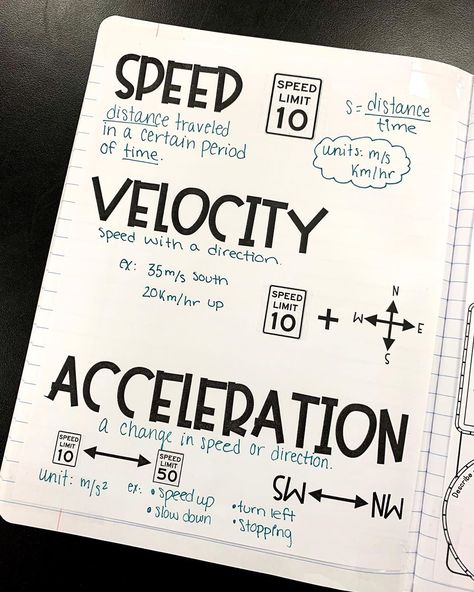 SPEED
distance traveled
in a certain period
of time.
SPEED
LIMIT
10
S = distance
time
units: m/s
Km/hr
VELOCITY
speed with a direction.
ex: 35m/s south
20Km/hr up
SPEED
LIMIT
10
+
N
W E
S
ACCELERATION
a change in speed or direction.
SPEED
LIMIT
10
SPEED
LIMIT
50
unit: m/s²
ex: • speed up
• slow down
• turn left
• Stopping
SW NW
Describe